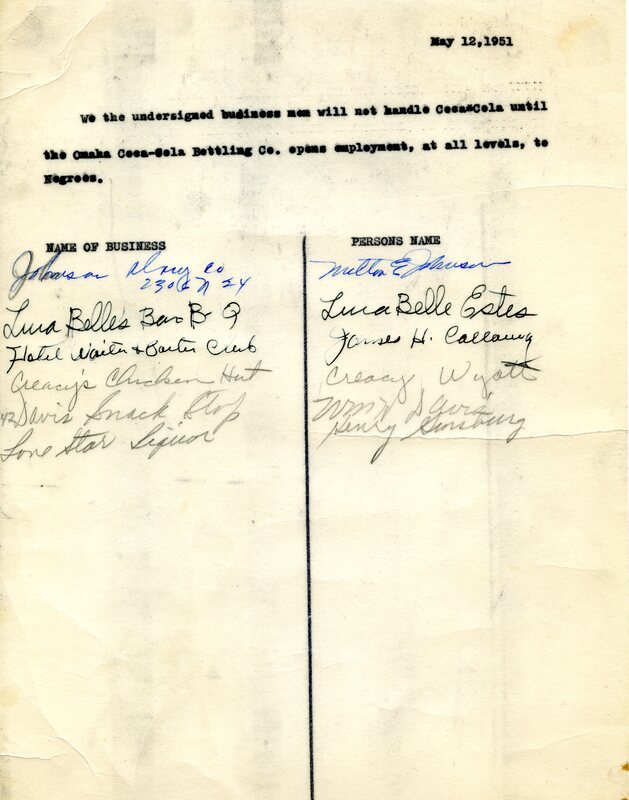 May 12,1951
We the undersigned business men will not handle Coca-Cola until
the Omaha Coca-Cola Bottling Co. opens employment, at all levels, to
Negroes.
NAME OF BUSINESS PERSONS NAME
Johnson Drug Co Milton E Johnson
2306 N 24
Lura Belle's Bar B Q Lura Belle Estes
Hotel Waiter & Porter Club James H. Calloway
Creacy's Chicken Hut Creacy Wyatt
Davis Snack Stop Davis
Lone Star Liquor Henry Ginsburg